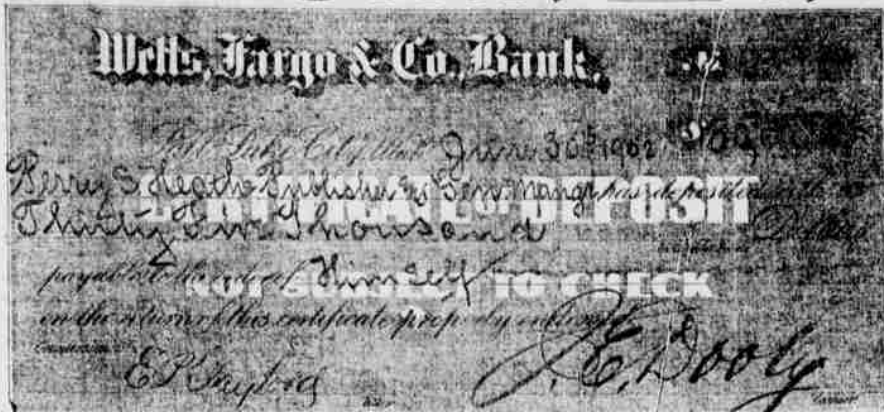 Wells, Fargo & Co., Bank,
Salt Lake City, Utah June 30th 1902
Perry S. Heath Publisher & Gen. Mangr has deposited in this
CERTIFICATE OF DEPOSIT
Thousand Dollars
payable to the order of Himself
NOT SUBJECT TO CHECK
on the return of this certificate properly endorsed
J. E. Dooly